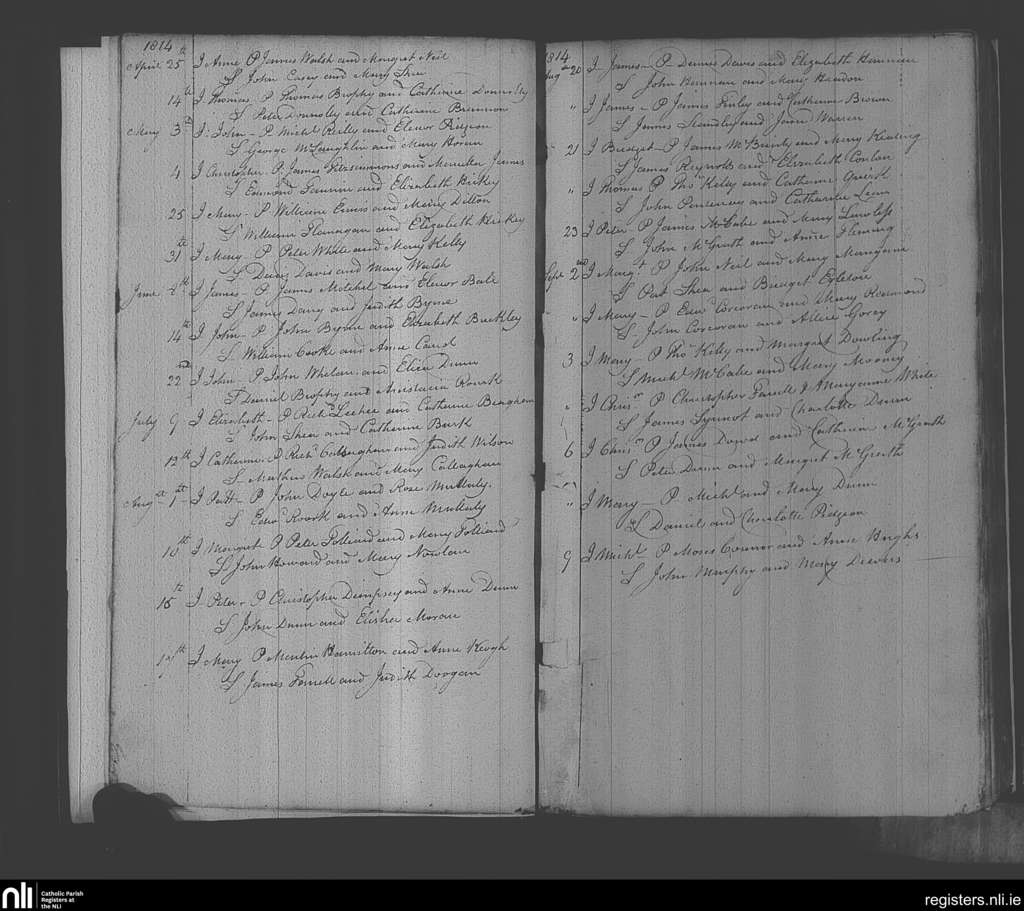 1814
April 25th I Anne P James Walsh and Margret Neil
S John Casey and Mary Shea
14th I Thomas - P Thomas Brophy and Catherine Donnoley
S Peter Donnoley and Catherine Brennon
May 3d I John - P Michl Reilly and Elenor Pidgeon
S George McLaughlin and Mary Horan
4 I Christopher P James Fitzsimmons and James
S Edmond and Elizabeth Hickey
25 I Mary - P William Ennis and Mary Dillon
S William Flannagan and Elizabeth Hickey
31th I Mary - P Peter White and Mary Kelly
S Denis Davis and Mary Walsh
June 4th I James - P James Mitchel and Elenor
S James Dany and Judith Byrne
14th I John - P John Byrne and Elizabeth Buckley
S William Cooke and Anne
22nd I John - P John Whelan and Eliza Dunn
S Daniel Brophy and Anistacia Rourk
July 9 I Elizabeth - P Richd and Catherine
S John Shea and Catherine Burk
12th I Catherine P Richd Callaghan and Judith Wilson
S Mathew Walsh and Mary Callaghan
Augst 1st I Patt - P John Doyle and Rose Mullaly
S Edwd Rourk and Anne Mullaly
10th I Margret P Peter Folliard and Mary Folliard
S John Howard and Mary Nowlan
15th I Peter - P Christopher Dempsey and Anne Dunn
S John Dunn and Elisha Moran
19th I Mary P Martin Hamilton and Anne Keogh
S James Farrell and Judith Doogan
1814
Augst 20 I James - P Dennis Davis and Elizabeth
S John and Mary
" I James - P James Finley and Catherine Brown
S James Standley and Jane Warren
21 I Bridget - P James and Mary Keating
S James Reynolds and Elizabeth Conlan
" I Thomas P Thos Kelly and Catherine
S John and Catherine Lean
23 I Peter - P James McCabe and Mary Lawless
S John McGrath and Anne Fleming
Sept 2nd I Margt P John Neil and Mary
S Pat Shea and Bridget
" I Mary - P Edwd Corcoran and Mary
S John Corcoran and Alice Gorey
3 I Mary - P Thos Kelly and Margaret Dowling
S Michl McCabe and Mary Mooney
" I Chrisr P Christopher Farrell & Maryanne White
S James Synnot and Charlotte Dunn
6 I Chrisr P James Dowd and Catherine McGrath
S Peter Dunn and Margret McGrath
" I Mary - P Michl and Mary Dunn
S Daniel and Charlotte Pidgeon
9 I Michl P Moses Connor and Anne
S John Murphy and Mary
nli
Catholic Parish
Registers at
the NLI
registers.nli.ie